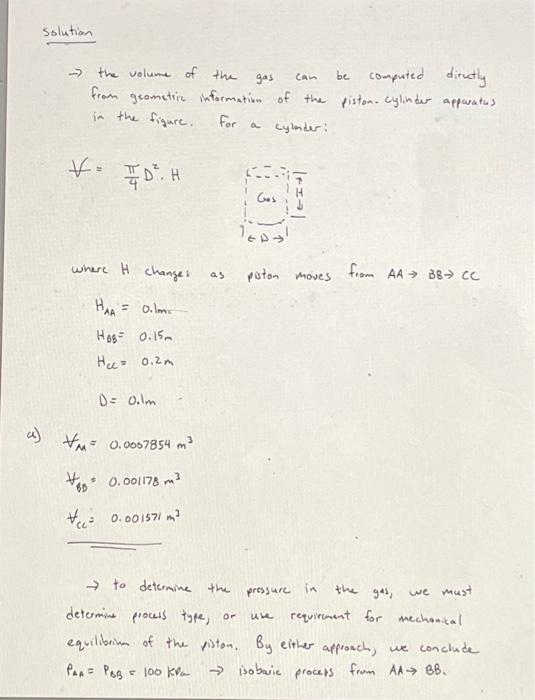 Solution
→ the volume of the gas can be computed directly
from geometric information of the piston-cylinder apparatus
in the figure. For a cylinder:
V = π/4 D². H
Gas
H
← D →
where H changes as piston moves from AA → BB → CC
H_AA = 0.1m
H_BB = 0.15m
H_CC = 0.2m
D = 0.1m
a) V_AA = 0.0007854 m³
V_BB = 0.001178 m³
V_CC = 0.001571 m³
→ to determine the pressure in the gas, we must
determine process type, or use requirement for mechanical
equilibrium of the piston. By either approach, we conclude
P_AA = P_BB = 100 kPa → isobaric process from AA → BB.